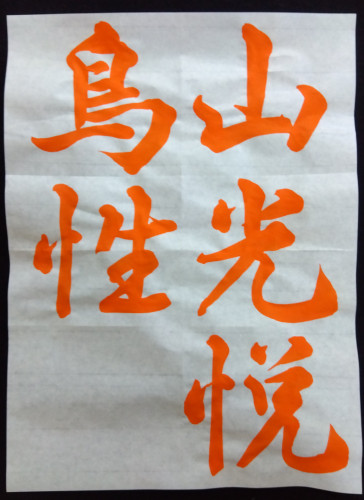 山光悦
鳥性